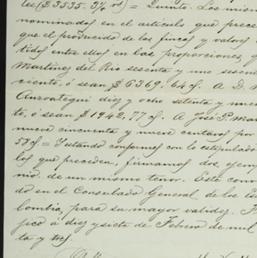 les ($3535.34 rs) = Quinto. Los mismos
nominados en el artículo que prece
que el producido de las fincas y valores
tidos entre ellos en las proporciones
Martinez del Rio sesenta y uno sesen
ciento, ó sean $6369.64 rs. A D.
Anzoategui diez y ocho setenta y nueve
to, ó sean $1942.77 rs. A José P. Mar
nueve cincuenta y nueve centavos por
58 rs = Estando conformes con lo estipulado
los que preceden, firmamos dos ejemp
nid. de un mismo tenor. Este con
do en el Consulado General de los Es
lombia, para su mayor validez. 
jico á diez y siete de Febrero de mil
ta y tres.